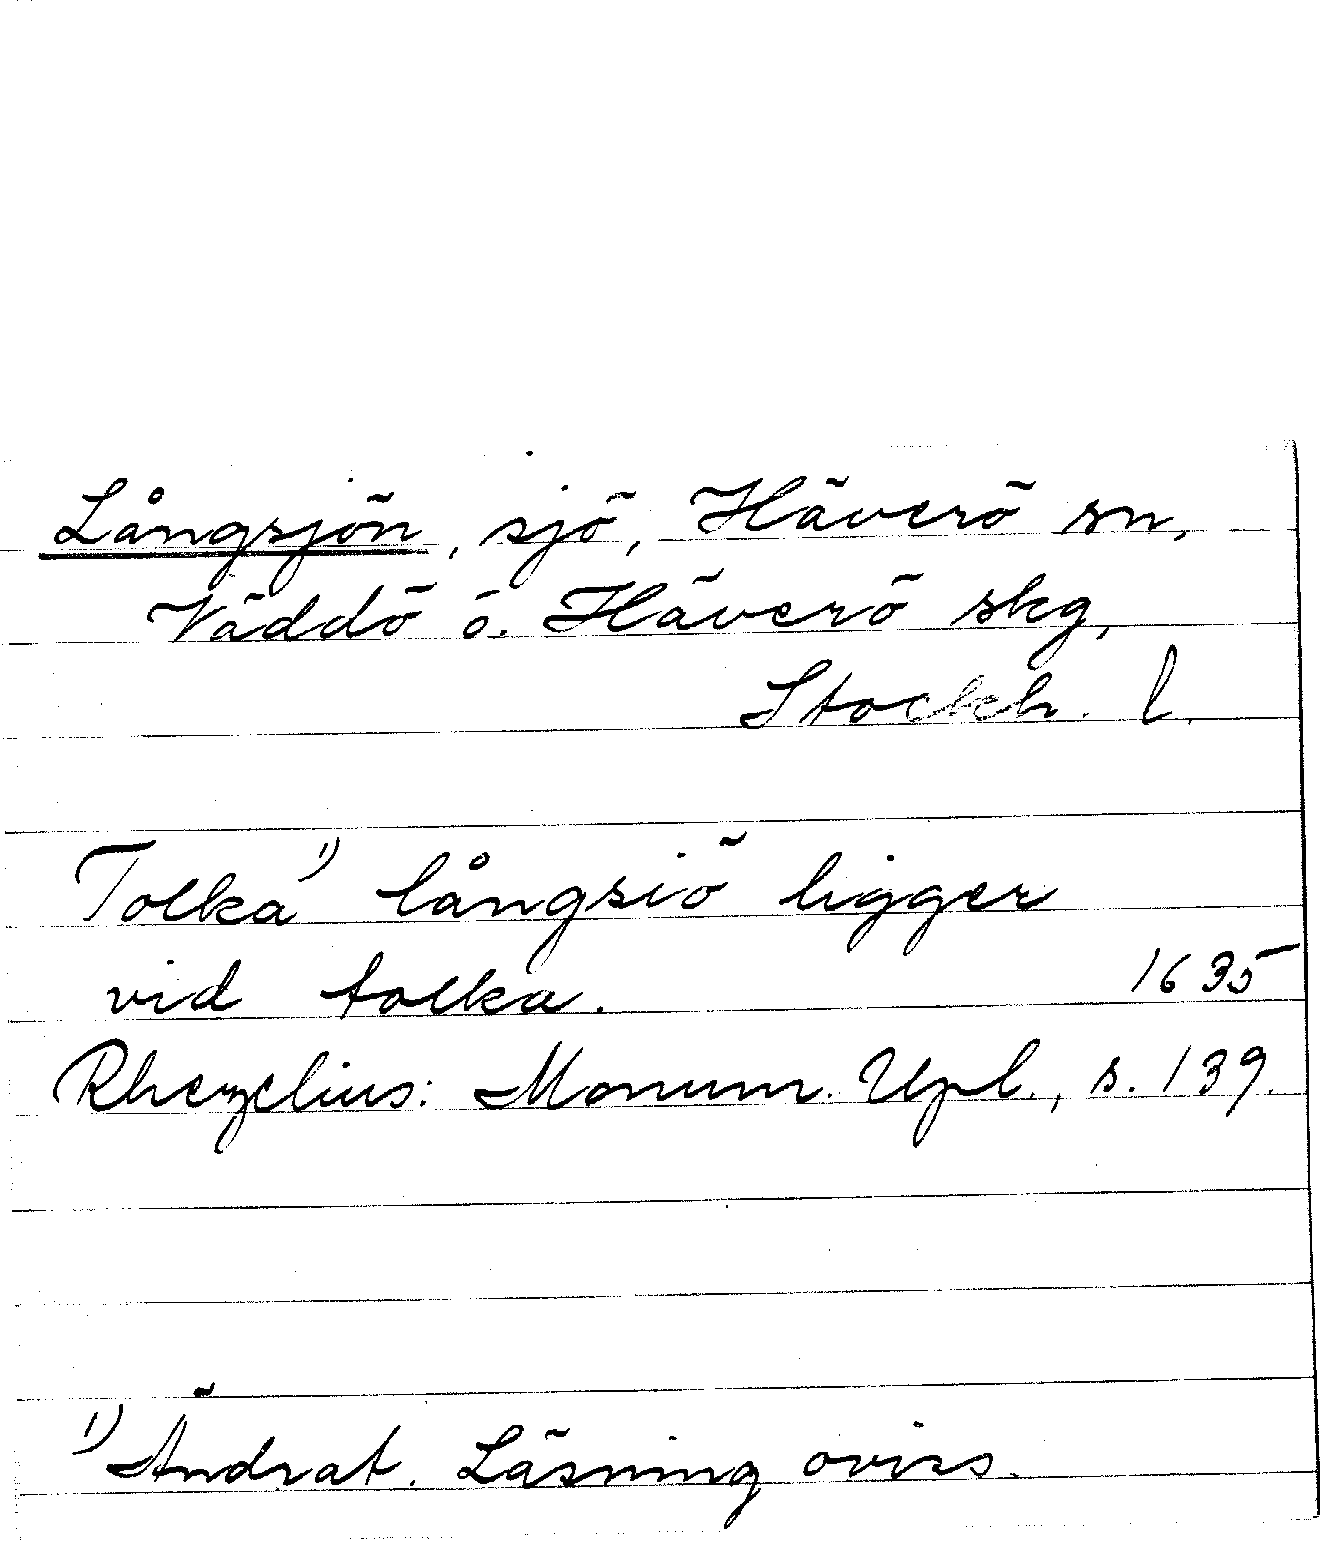 Långsjön, sjö, Häverö sn,
Väddö o. Häverö skg,
Stockh. l.
Tolka¹⁾ långsiö ligger
vid tolka. 1635
Rhezelius: Monum. Upl., s. 139.
¹⁾ Ändrat. Läsning oviss.